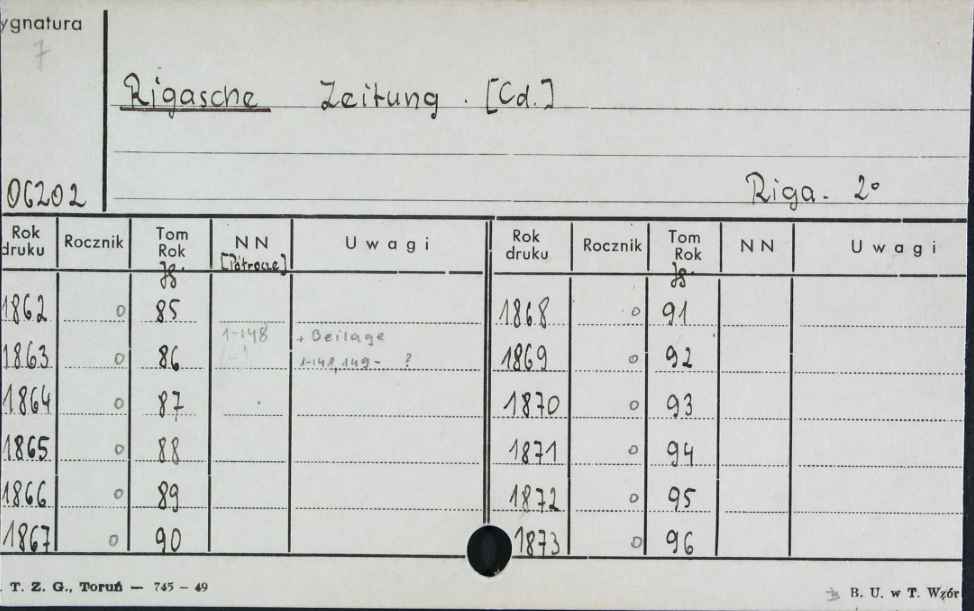 ygnatura
7
Rigasche Zeitung. [Cd.]
06202
Riga. 2°
Rok druku Rocznik Tom Rok NN Uwagi Rok druku Rocznik Tom Rok NN Uwagi
Jg. [Półrocze] Jg.
1862 0 85 1868 0 91
1863 0 86 1-148 + Beilage 1-148, 149- ? 1869 0 92
1864 0 87 1870 0 93
1865 0 88 1871 0 94
1866 0 89 1872 0 95
1867 0 90 1873 0 96
. T. Z. G., Toruń — 745 – 49
B. U. w T. Wzór